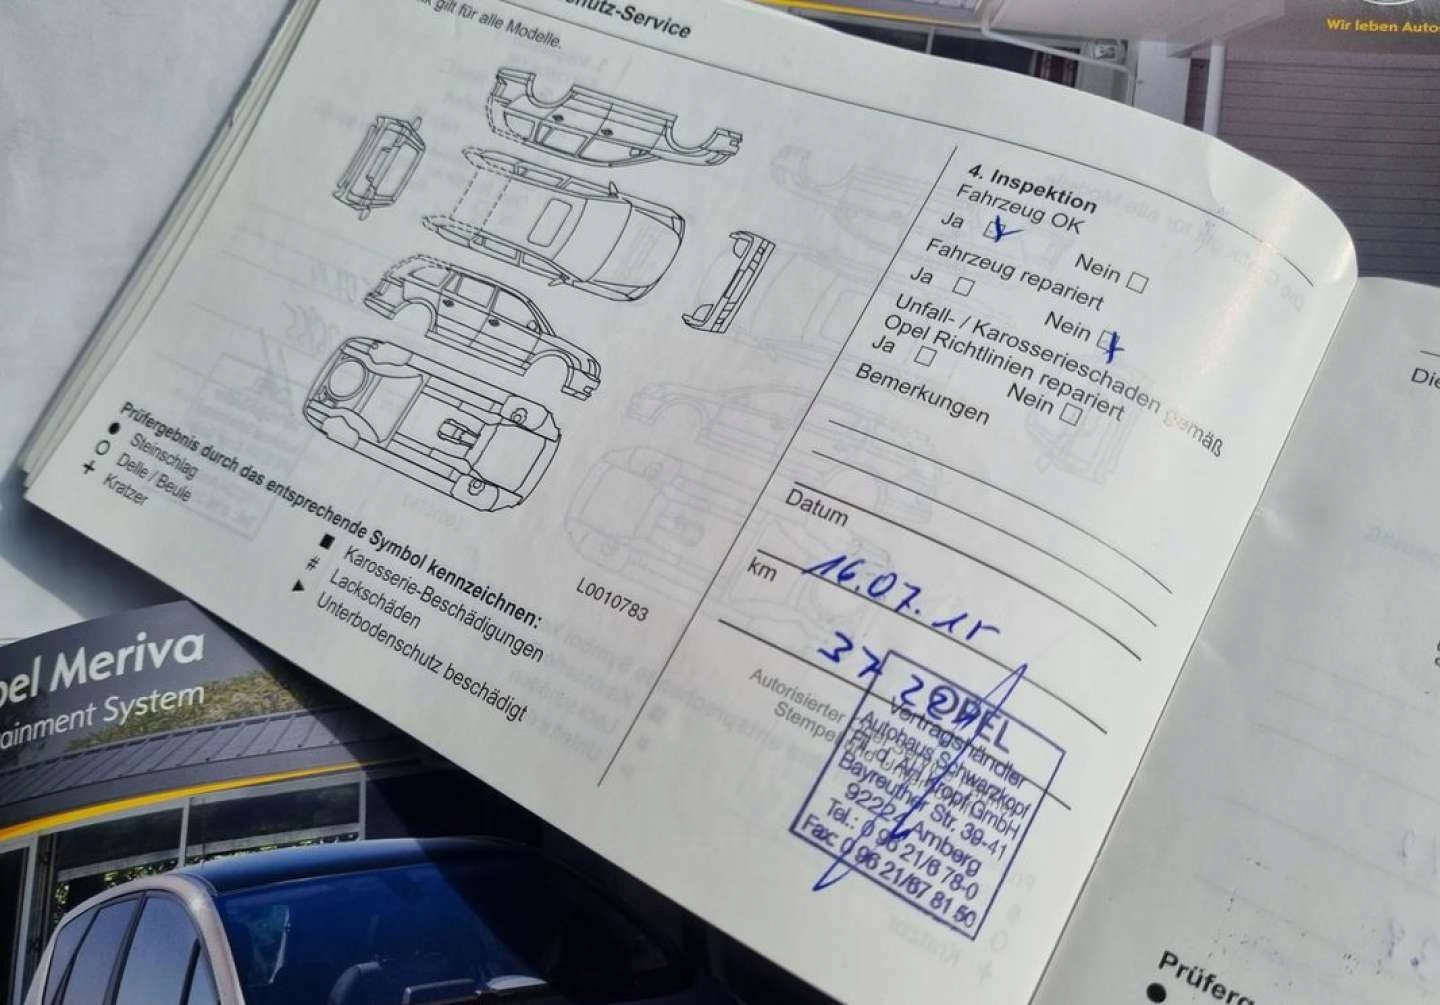 Wir leben Autos
-Service
gilt für alle Modelle.
4. Inspektion
Fahrzeug OK
Ja
Nein
Fahrzeug repariert
Ja
Nein
Unfall- / Karosserieschaden gemäß
Opel Richtlinien repariert
Ja
Nein
Bemerkungen
Datum
16.07.15
km
37
Autorisierter
Stempel
OPEL
Vertragshändler
Autohaus Schwarzkopf
GmbH
Bayreuther Str. 39-41
92224 Amberg
Tel.: 0 96 21/6 78-0
Fax: 0 96 21/67 81 50
Prüfergebnis durch das entsprechende Symbol kennzeichnen:
● Steinschlag
○ Delle / Beule
+ Kratzer
■ Karosserie-Beschädigungen
# Lackschäden
► Unterbodenschutz beschädigt
L0010783
Meriva
System